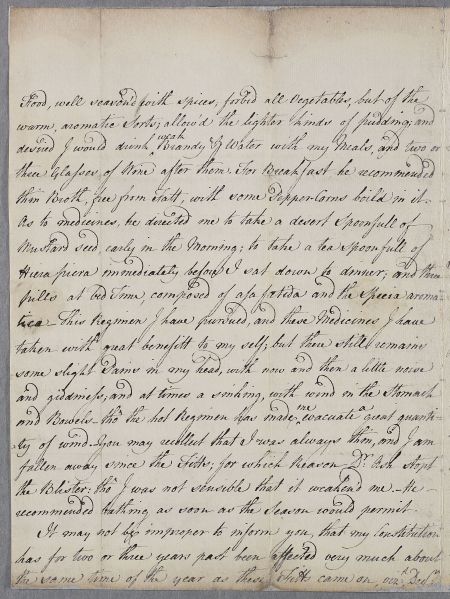 Food, well seasoned with spices; forbid all Vegetables, but of the
warm, aromatic Sorts; allow'd the lighter kinds of pudding; and
desired I would drink weak Brandy & Water with my Meals, and two or
three Glasses, of Wine after them. For Breakfast he recommended
thin Broth, free from fatt, with some Pepper-Corns boild in it.
As to medicines, he directed me to take a desert Spoonfull of
Mustard seed early in the Morning; to take a tea Spoonfull of
Hiera picra immediately before I sat down to dinner; and three
pills at bed Time, composed of asa foetida and the Specia aroma-
tica - This Regimen I have pursued, and these Medicines I have
taken with great benefitt to my self; but there still remains
some slight Pains in my head, with now and then a little noise
and giddiness; and at times a sinking, with wind in the Stomach
and Bowels - tho' the hot Regimen has made me evacuate a great quanti-
ty of wind - you may recollect that I was always thin, and I am
fallen away since the Fitts; for which Reason Dr. Ash stopt
the Blister; tho' I was not sensible that it weakend me - He
recommended bathing as soon as the Season would permit -
It may not be improper to inform you, that my Constitution
has for two or three years past been affected very much about
the same time of the year as these Fitts came on, vizt. Decr.